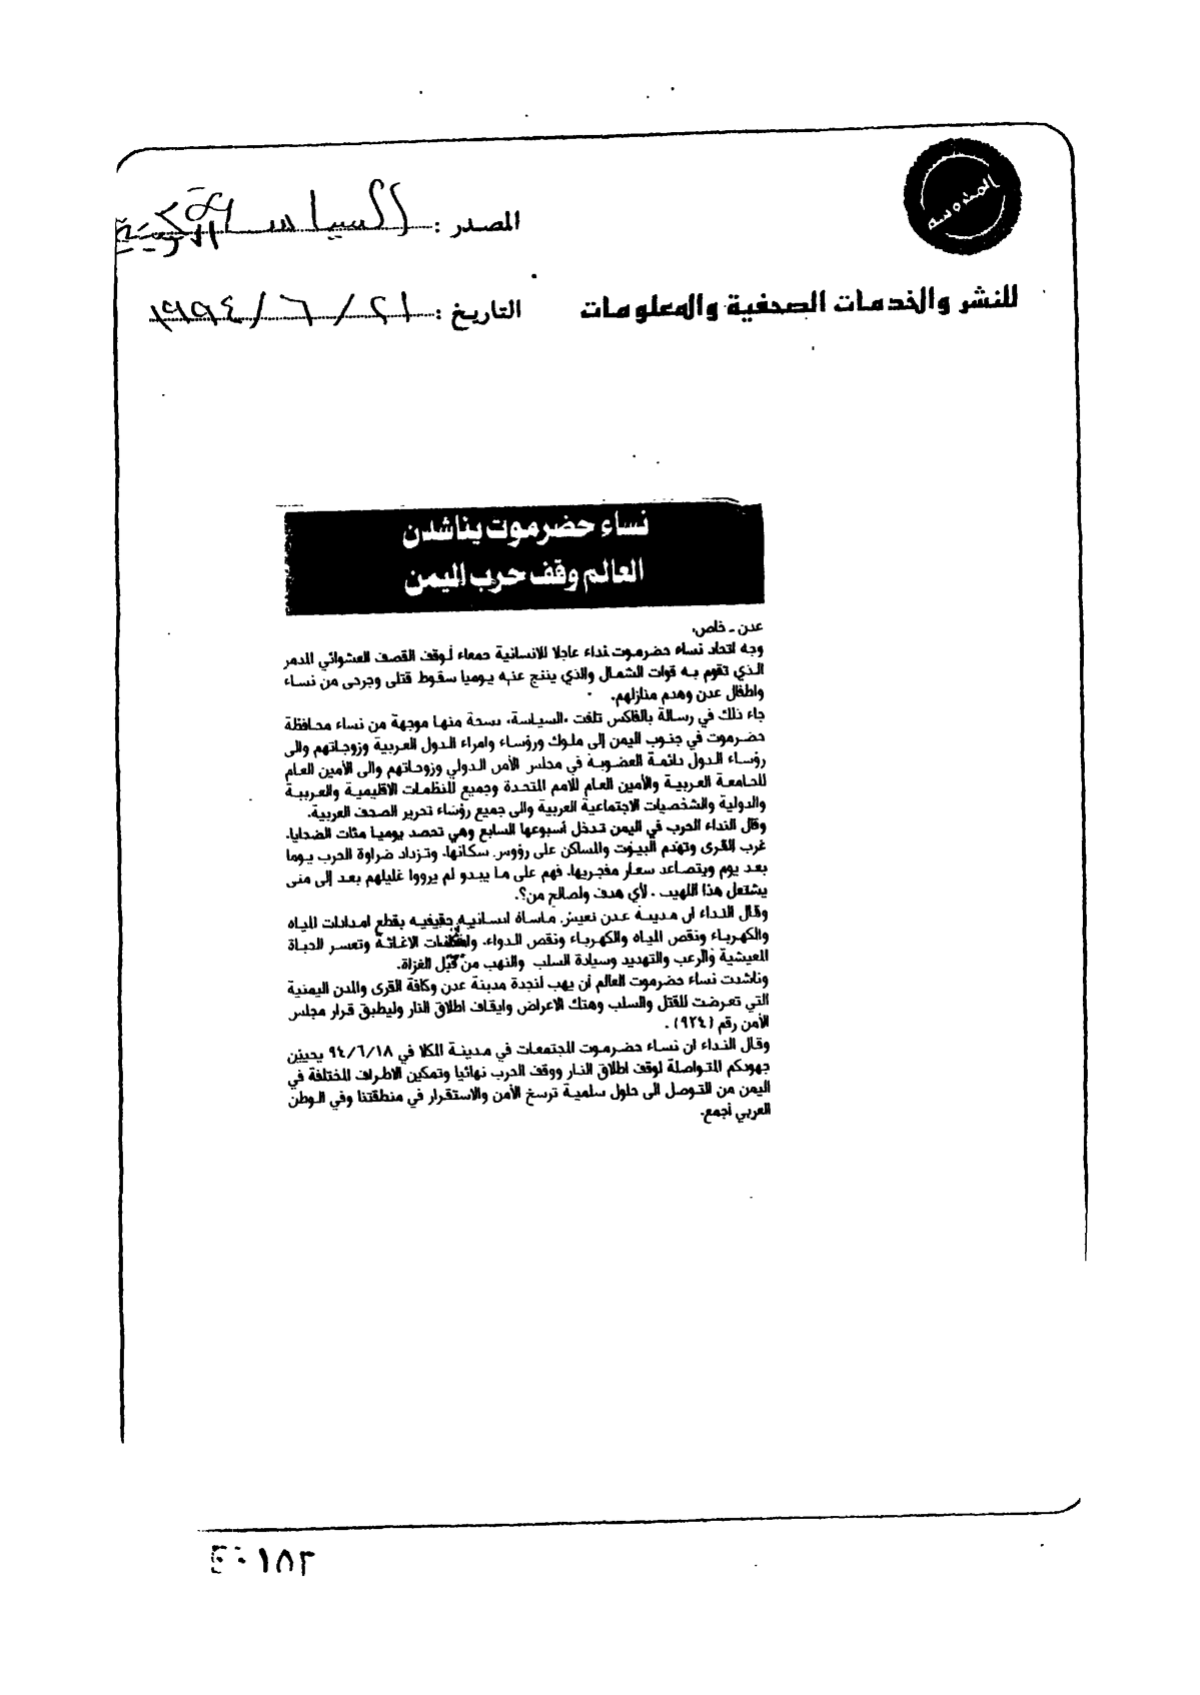 المدوسه
المصدر : السياسة الكويتية
للنشر والخدمات الصحفية والمعلومات
التاريخ : ٢١ / ٦ / ١٩٩٤
نساء حضرموت يناشدن
العالم وقف حرب اليمن
عدن ـ خاص،
وجه اتحاد نساء حضرموت نداء عاجلا للانسانية جمعاء لوقف القصف العشوائي المدمر
الذي تقوم به قوات الشمال والذي ينتج عنه يوميا سقوط قتلى وجرحى من نساء
واطفال عدن وهدم منازلهم.
جاء ذلك في رسالة بالفاكس تلقت «السياسة» نسخة منها موجهة من نساء محافظة
حضرموت في جنوب اليمن إلى ملوك ورؤساء وامراء الدول العربية وزوجاتهم والى
رؤساء الدول دائمة العضوية في مجلس الأمن الدولي وزوجاتهم والى الأمين العام
للجامعة العربية والأمين العام للامم المتحدة وجميع المنظمات الاقليمية والعربية
والدولية والشخصيات الاجتماعية العربية والى جميع رؤساء تحرير الصحف العربية.
وقال النداء الحرب في اليمن تدخل أسبوعها السابع وهي تحصد يوميا مئات الضحايا،
غرب القرى وتهدم البيوت والمساكن على رؤوس سكانها، وتزداد ضراوة الحرب يوما
بعد يوم ويتصاعد سعار مفجريها، فهم على ما يبدو لم يرووا غليلهم بعد إلى متى
يشتعل هذا اللهيب . لأي هدف ولصالح من؟.
وقال النداء ان مدينة عدن تعيش مأساة انسانية حقيقية بقطع امدادات المياه
والكهرباء ونقص المياه والكهرباء ونقص الدواء، وامكانات الاغاثة وتعسر الحياة
المعيشية والرعب والتهديد وسيادة السلب والنهب من قبل الغزاة.
وناشدت نساء حضرموت العالم أن يهب لنجدة مدينة عدن وكافة القرى والمدن اليمنية
التي تعرضت للقتل والسلب وهتك الاعراض وايقاف اطلاق النار وليطبق قرار مجلس
الأمن رقم (٩٢٤) .
وقال النداء ان نساء حضرموت المجتمعات في مدينة المكلا في ٩٤/٦/١٨ يحيين
جهودكم المتواصلة لوقف اطلاق النار ووقف الحرب نهائيا وتمكين الاطراف المختلفة في
اليمن من التوصل الى حلول سلمية ترسخ الأمن والاستقرار في منطقتنا وفي الوطن
العربي أجمع.
١٥٢